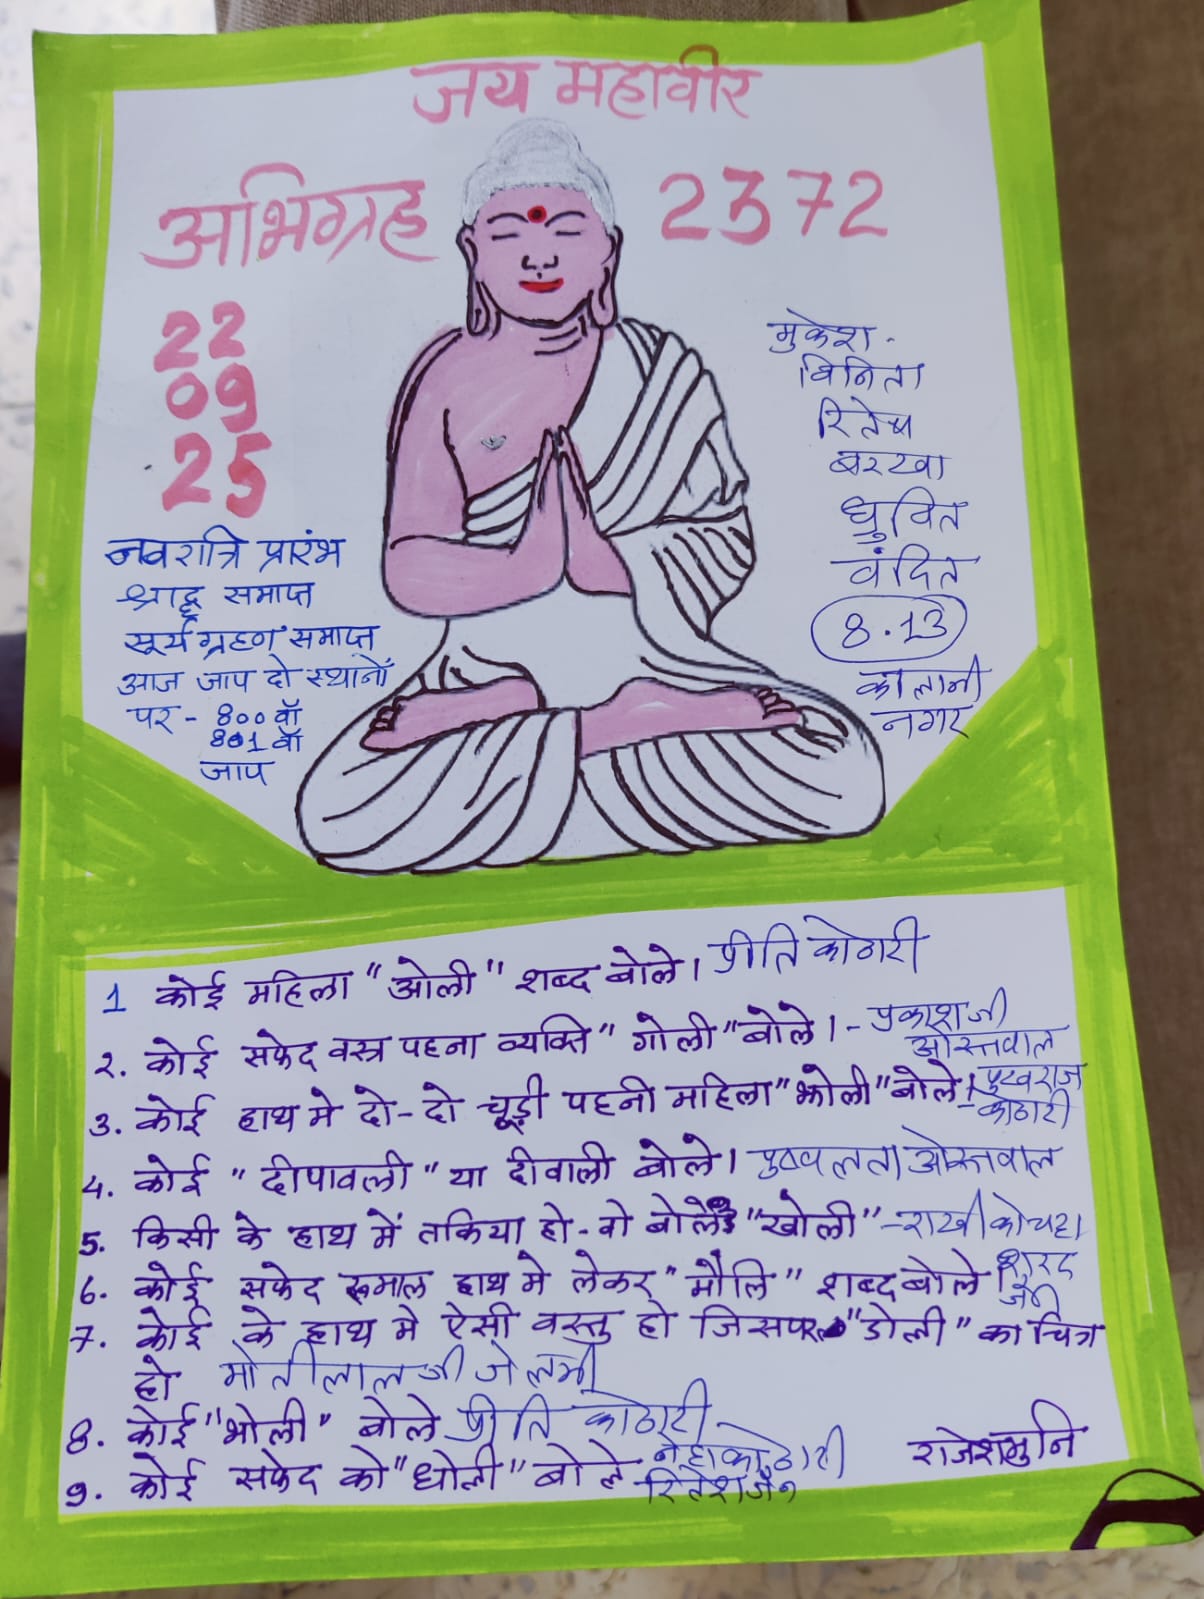 जय महावीर
अभिग्रह 2372
22
09
25
नवरात्रि प्रारंभ
श्राद्ध समाप्त
सूर्य ग्रहण समाप्त
आज जाप दो स्थानों
पर - 800 वाँ
801 वाँ
जाप
मुकेश -
विनिता
रितेश
बरखा
ध्रुवित
वंदित
8.13
कालानी
नगर
1 कोई महिला "ओली" शब्द बोले। प्रीति कोठारी
2. कोई सफेद वस्त्र पहना व्यक्ति "गोली" बोले। - प्रकाश जी
ओस्तवाल
3. कोई हाथ मे दो-दो चूड़ी पहनी महिला "झोली" बोले। - पुखराज
कोठारी
4. कोई "दीपावली" या दीवाली बोले। पुष्पलता ओस्तवाल
5. किसी के हाथ में तकिया हो - वो बोले "खोली" - राखी कोचटा
6. कोई सफेद रूमाल हाथ मे लेकर "मौलि" शब्द बोले। शारद
जैन
7. कोई के हाथ मे ऐसी वस्तु हो जिसपर "डोली" का चित्र
हो मोतीलाल जी जेलमी
8. कोई "भोली" बोले प्रीति कोठारी
9. कोई सफेद को "धोली" बोले नेहा कोठारी
रितेश जैन
राजेशमुनि